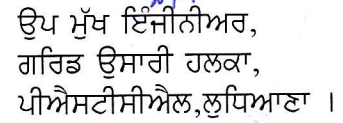 ਉਪ ਮੁੱਖ ਇੰਜੀਨੀਅਰ,
ਗਰਿਡ ਉਸਾਰੀ ਹਲਕਾ,
ਪੀਐਸਟੀਸੀਐਲ,ਲੁਧਿਆਣਾ ।